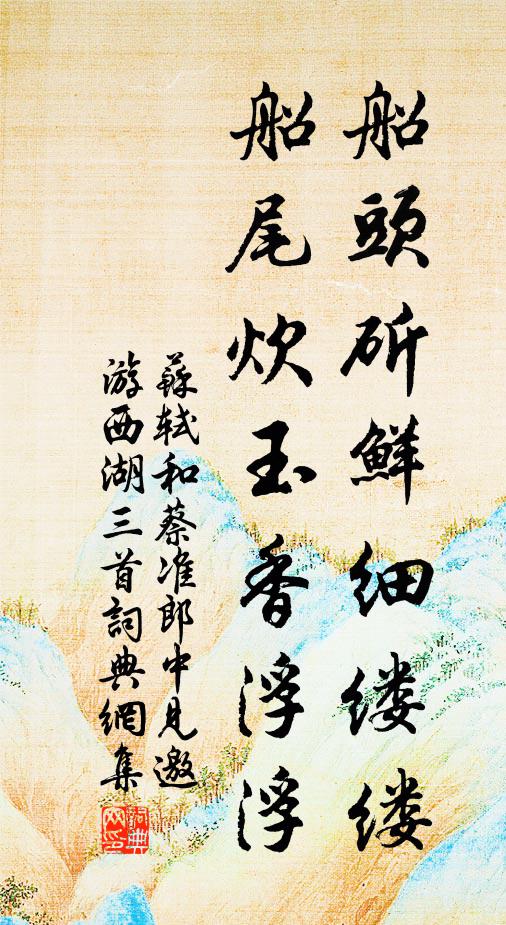 船頭斫鮮細缕缕
船尾炊玉香浮浮
蘇軾和蔡准郎中見邀
游西湖三首詞典網集